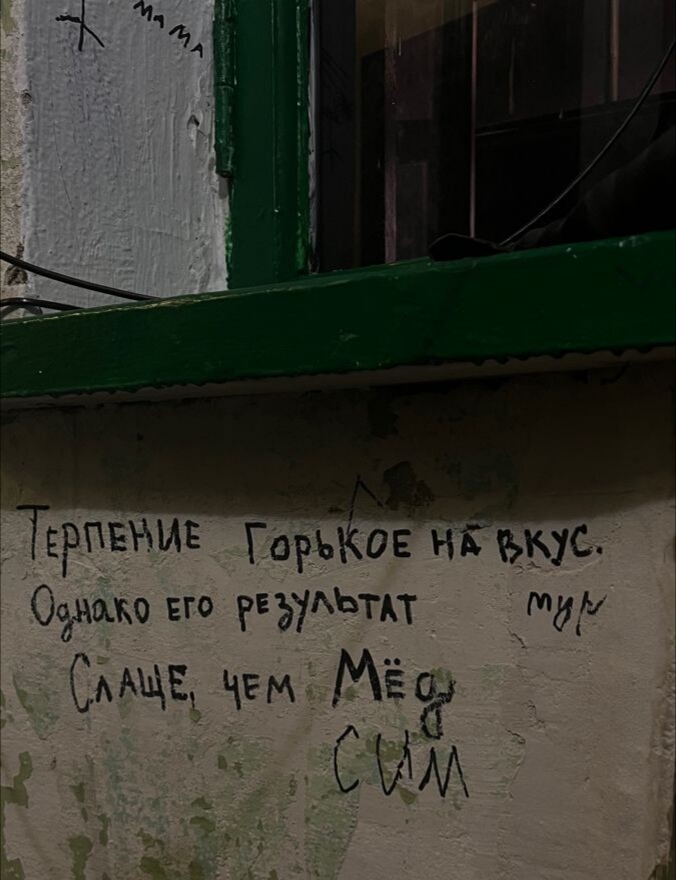 мама
Терпение Горькое на вкус.
Однако его результат мур
Слаще, чем Мёд
Сим